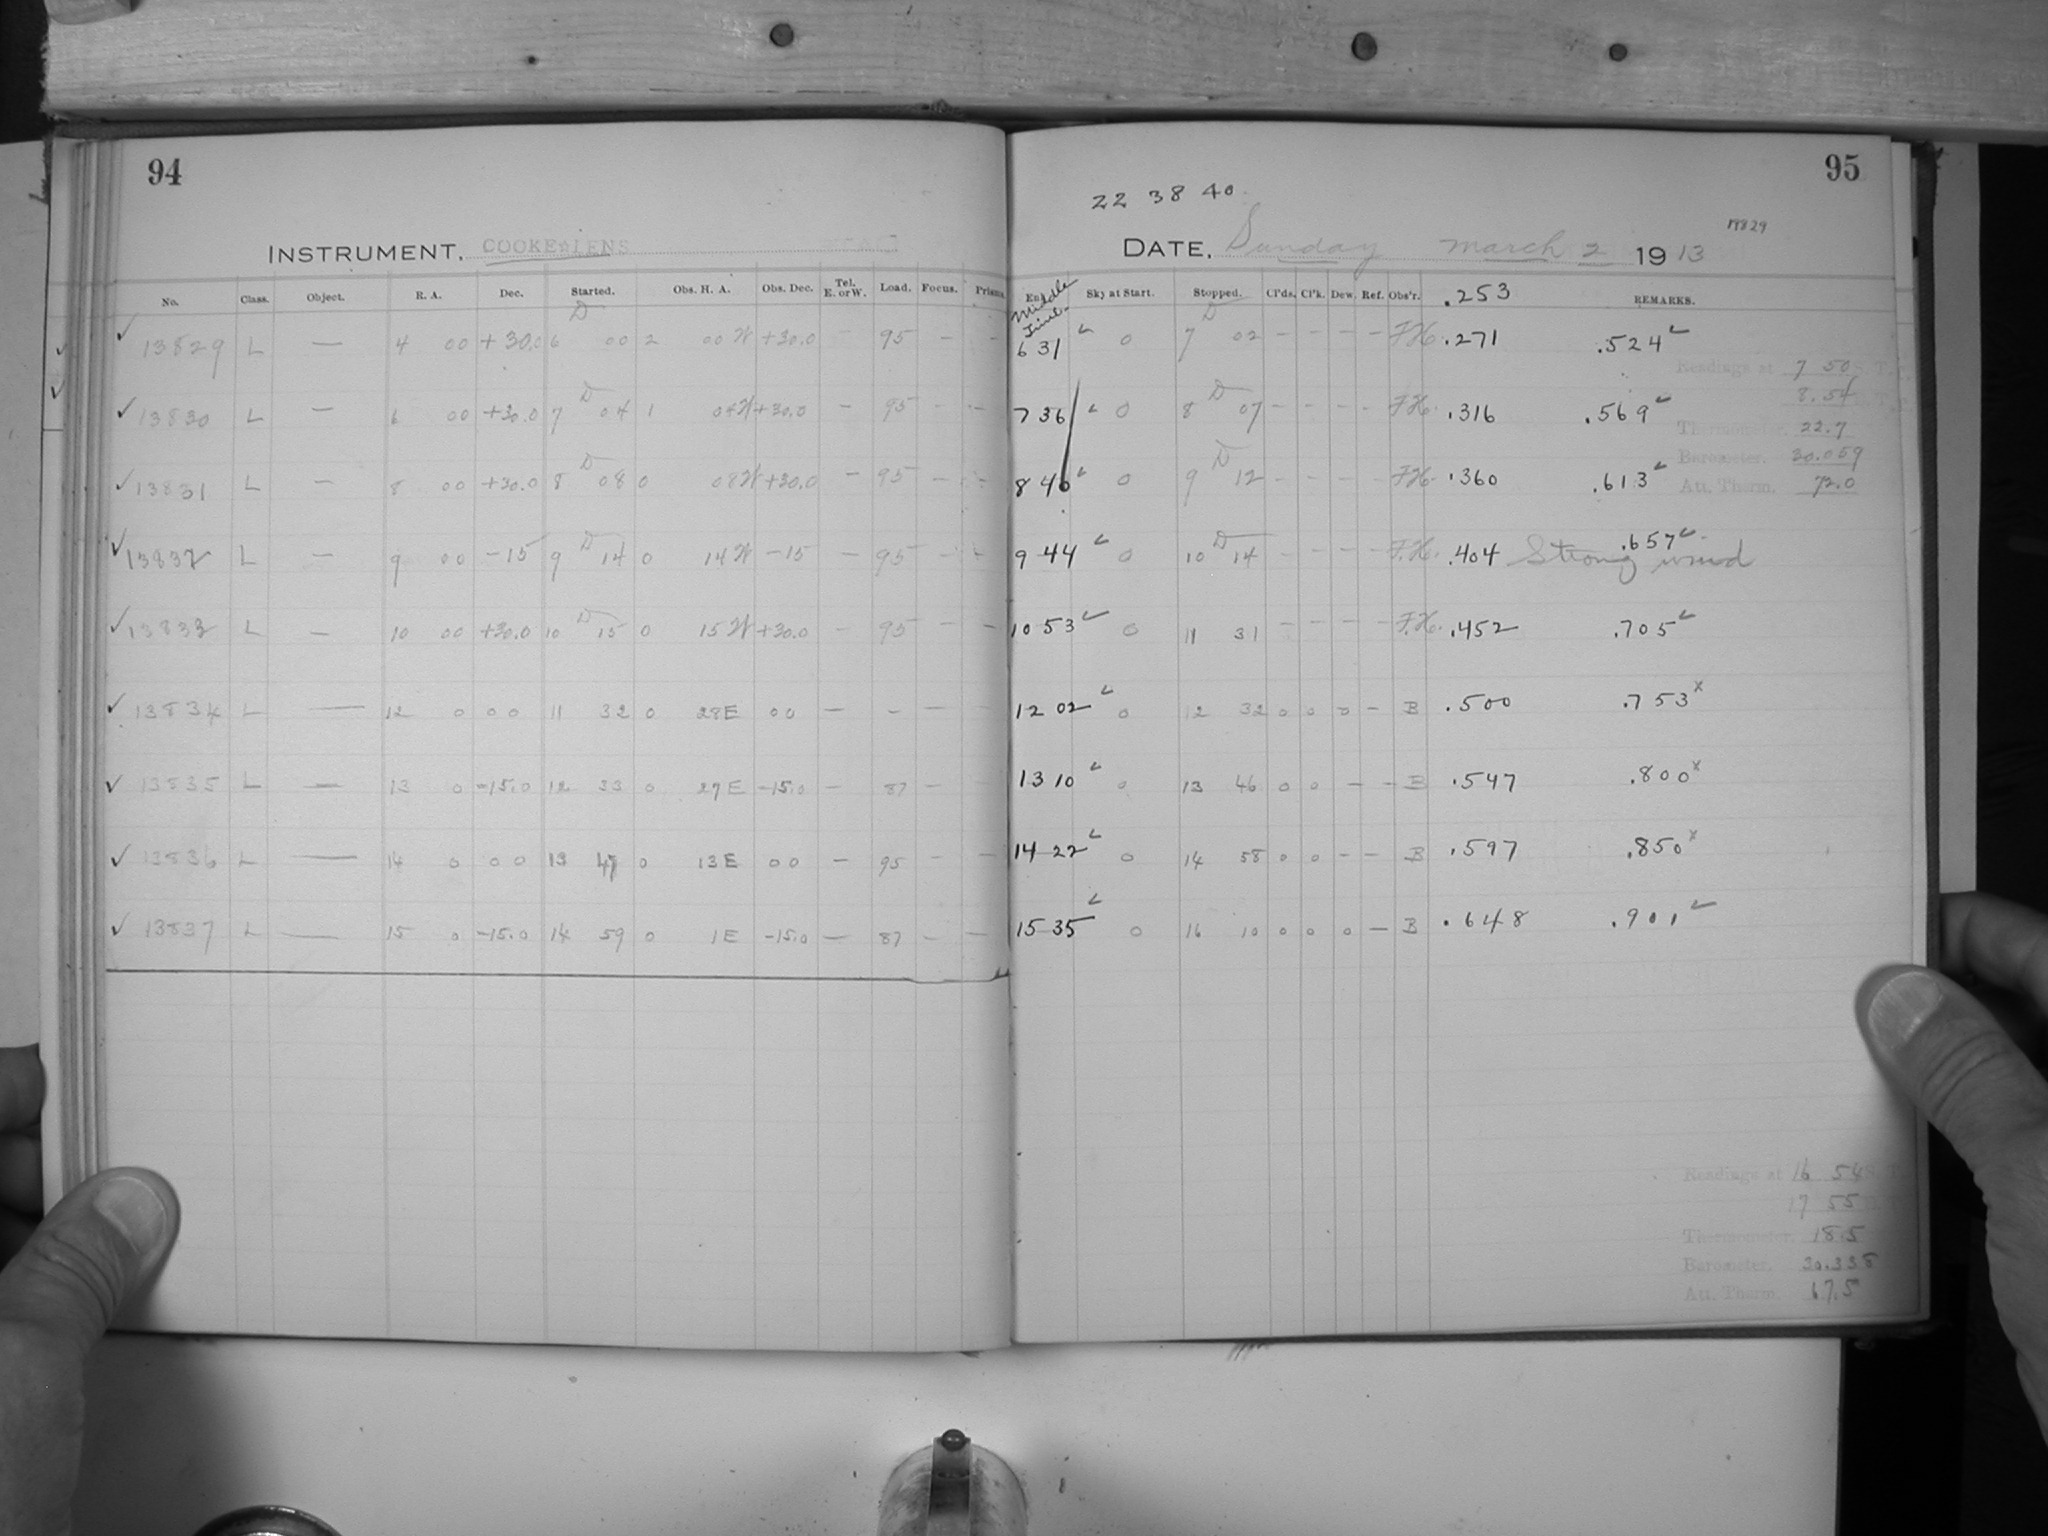 94
INSTRUMENT. COOKE LENS
No. Class. Object. R. A. Dec. Started. Obs. H. A. Obs. Dec. Tel. E. or W. Load. Focus. Prisms.
D
✓ 13829 L — 4 00 +30.0 6 00 2 00 W +30.0 - 95 - -
✓ 13830 L — 6 00 +30.0 7 D 04 1 04 W +30.0 - 95 - -
✓ 13831 L — 8 00 +30.0 8 D 08 0 08 W +30.0 - 95 - -
✓ 13832 L — 9 00 -15 9 D 14 0 14 W -15 - 95 - -
✓ 13833 L — 10 00 +30.0 10 D 15 0 15 W +30.0 - 95 - -
✓ 13834 L — 12 0 00 11 32 0 28 E 00 — - — -
✓ 13835 L — 13 0 -15.0 12 33 0 27 E -15.0 — 87 -
✓ 13836 L — 14 0 00 13 47 0 13 E 00 — 95 - —
✓ 13837 L — 15 0 -15.0 14 59 0 1 E -15.0 — 87 - —
95
22 38 40
DATE. Sunday March 2 1913
Middle Time Sky at Start. Stopped. Cl'ds. Cl'k. Dew. Ref. Obs'r. .253 REMARKS.
6 31 ✓ 0 7 D 02 - - - - F.H. .271 .524 ✓
Readings at 7 50
8.54
7 36 ✓ 0 8 D 07 - - - - F.H. .316 .569 ✓
Thermometer. 22.7
Barometer. 30.059
8 40 ✓ 0 9 D 12 - - - - F.H. .360 .613 ✓
Att. Therm. 72.0
9 44 ✓ 0 10 D 14 - - - - F.H. .404 .657 ✓
Strong wind
10 53 ✓ 0 11 31 - - - - F.H. .452 .705 ✓
12 02 ✓ 0 12 32 0 0 0 - B .500 .753 x
13 10 ✓ 0 13 46 0 0 - - B .547 .800 x
14 22 ✓ 0 14 58 0 0 - - B .597 .850 x
15 35 ✓ 0 16 10 0 0 0 - B .648 .901 ✓
Readings at 16 54 S.T.
17 55
Thermometer. 18.5
Barometer. 30.338
Att. Therm. 67.5